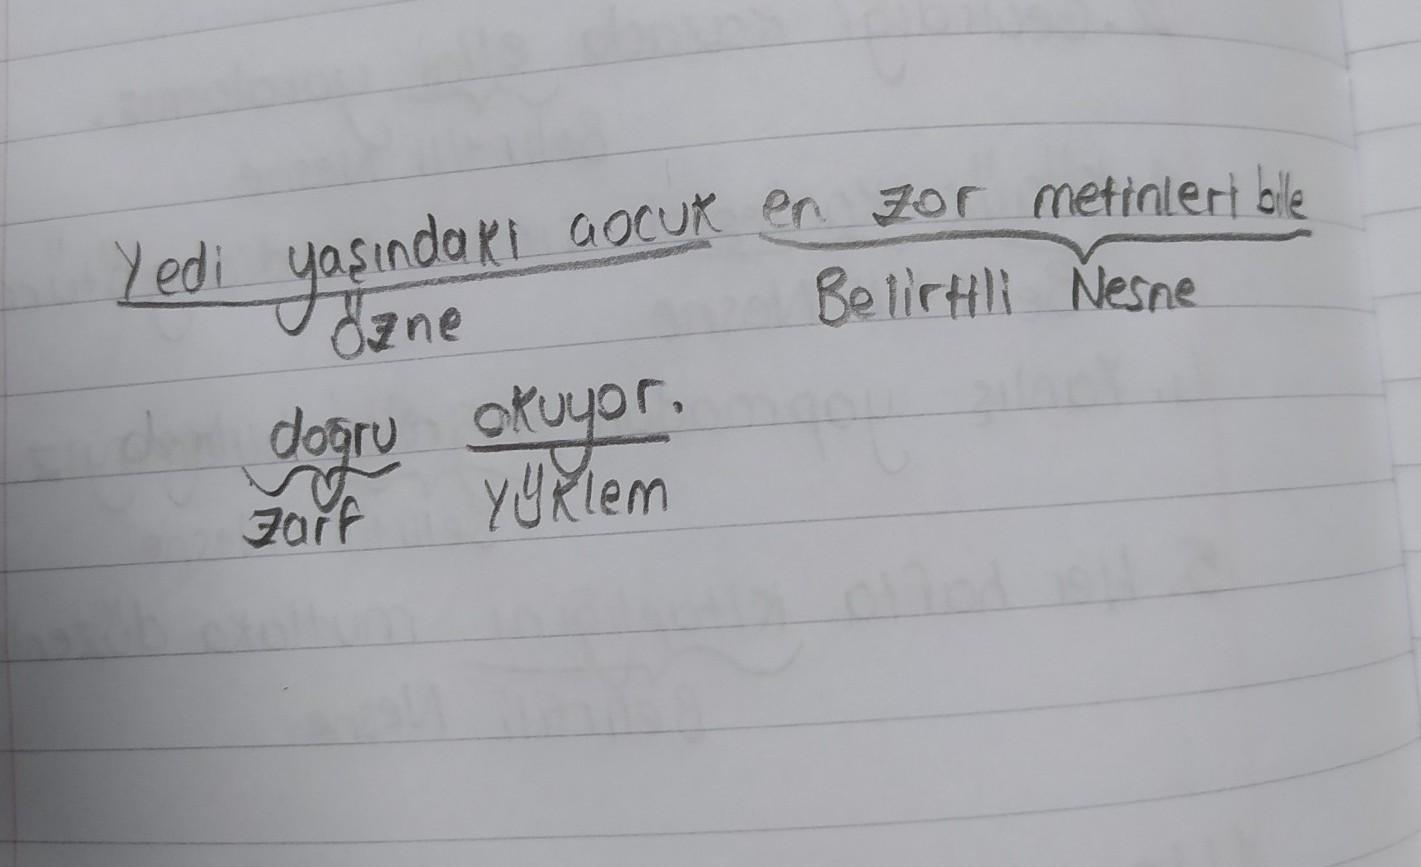 Yedi yaşındaki çocuk en zor metinleri bile
Özne Belirtili Nesne
doğru okuyor.
Zarf Yüklem